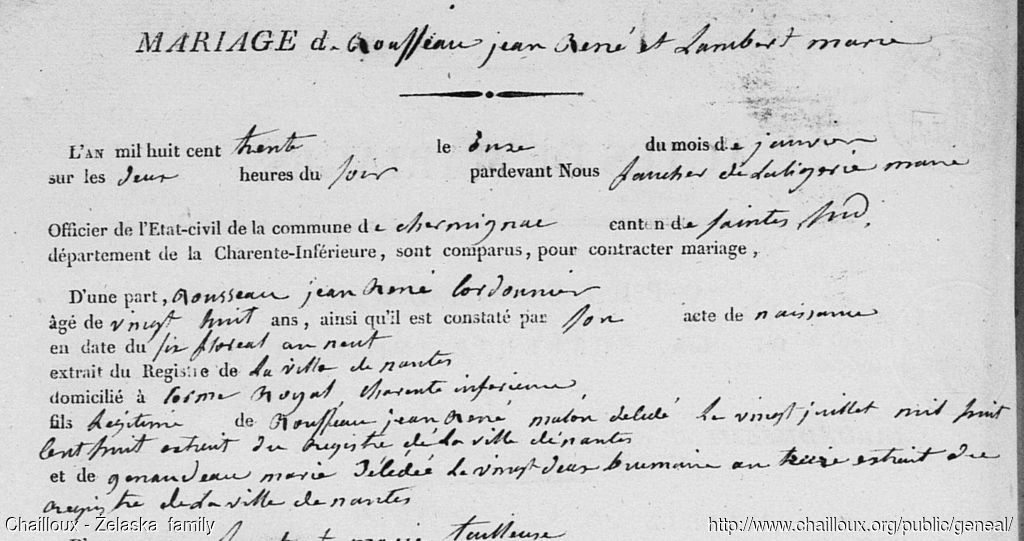 MARIAGE de Rousseau jean René et Lambert marie
L'AN mil huit cent trente le onze du mois de janvier
sur les deux heures du soir pardevant Nous faucher de Laligerie maire
Officier de l'Etat-civil de la commune de chermignac canton de saintes sud.
département de la Charente-Inférieure, sont comparus, pour contracter mariage,
D'une part, Rousseau jean René Cordonnier
âgé de vingt huit ans, ainsi qu'il est constaté par son acte de naissance
en date du six floreal an neuf
extrait du Registre de La ville de nantes
domicilié à Corme Royal, charente inferieure
fils legitime de Rousseau jean René maçon délédé Le vingt juillet mil huit
Cent huit extrait du registre dé La ville dé nantes
et de genaudeau marie Délédéé Le vingt deux brumaire an treize extrait du
registre de La ville de nantes
marie tailleuse
Chailloux - Żelaska family
http://www.chailloux.org/public/geneal/